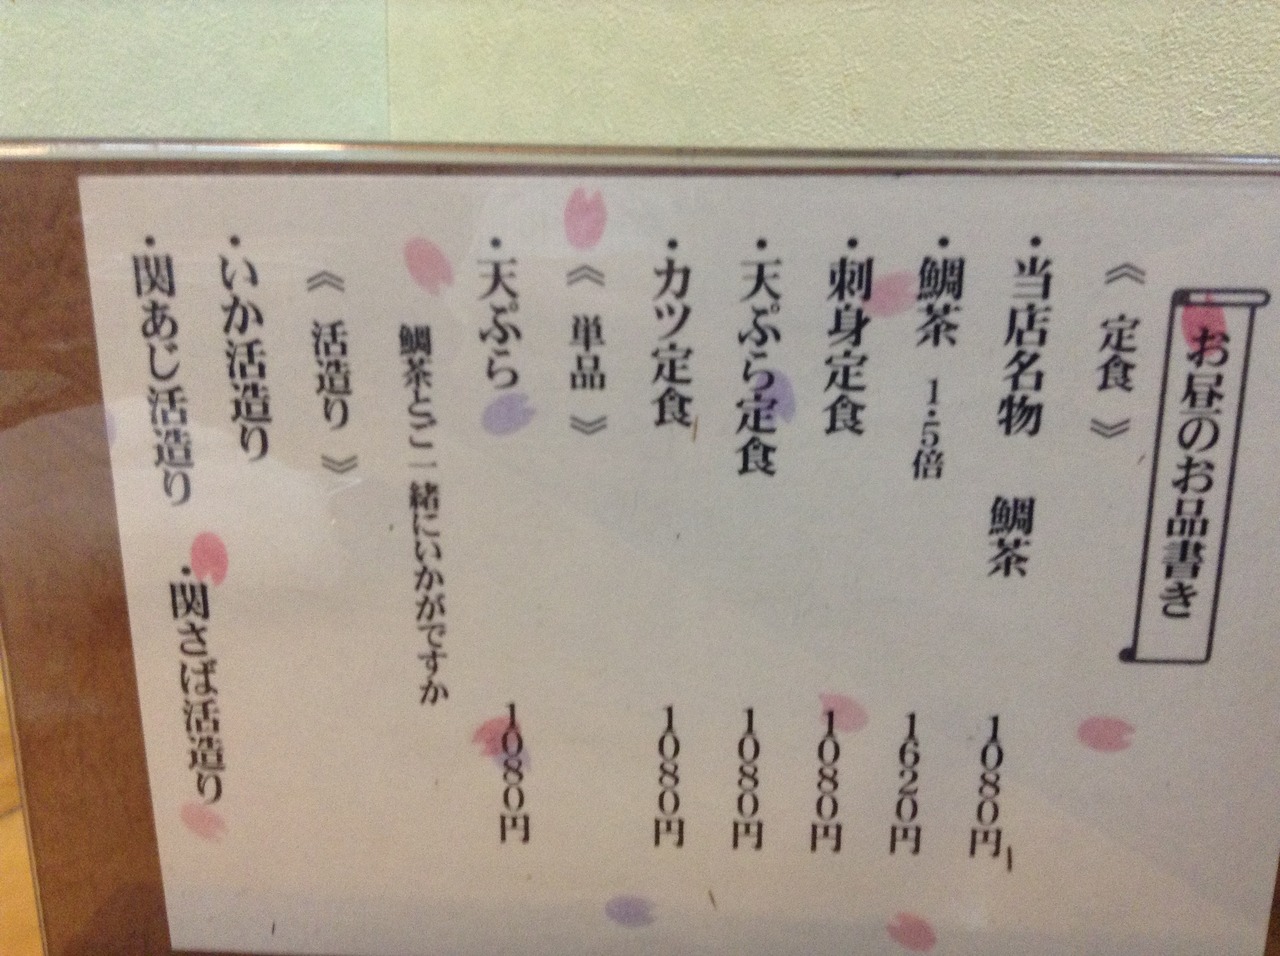 お昼のお品書き
《 定食 》
・当店名物 鯛茶 1080円
・鯛茶 1.5倍 1620円
・刺身定食 1080円
・天ぷら定食 1080円
・カツ定食 1080円
《 単品 》
・天ぷら 1080円
鯛茶とご一緒にいかがですか
《 活造り 》
・いか活造り
・関あじ活造り ・関さば活造り